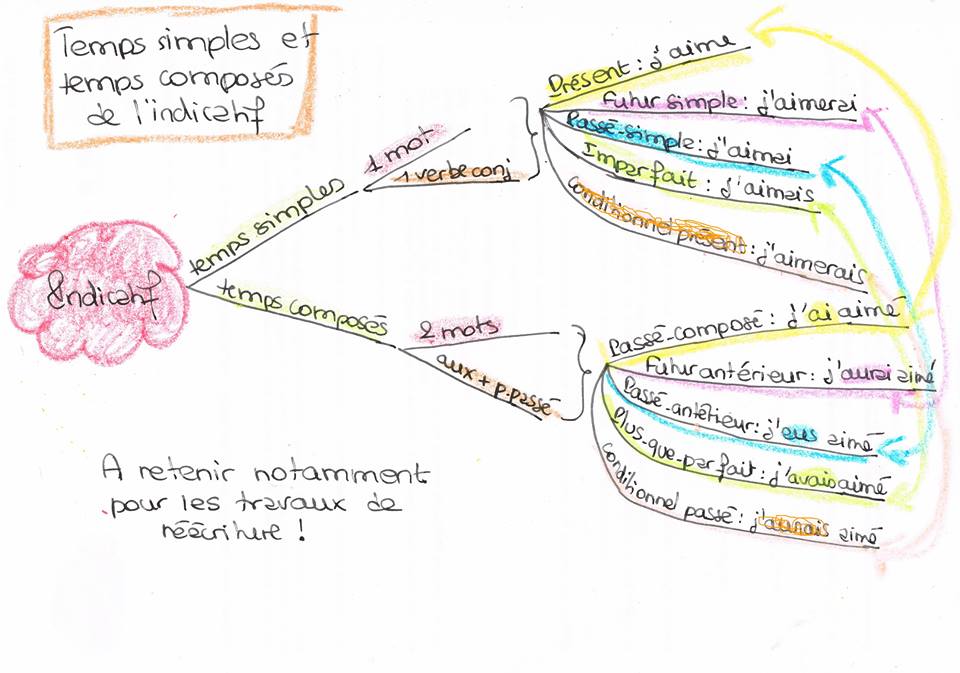 Temps simples et
temps composés
de l'indicatif
Indicatif
temps simples
1 mot
1 verbe conj
Présent : j'aime
Futur simple : j'aimerai
Passé-simple : j'aimai
Imparfait : j'aimais
conditionnel présent : j'aimerais
temps composés
2 mots
aux + p.passé
Passé-composé : j'ai aimé
Futur antérieur : j'aurai aimé
Passé-antérieur : j'eus aimé
Plus-que-parfait : j'avais aimé
conditionnel passé : j'aurais aimé
A retenir notamment
pour les travaux de
réécriture !